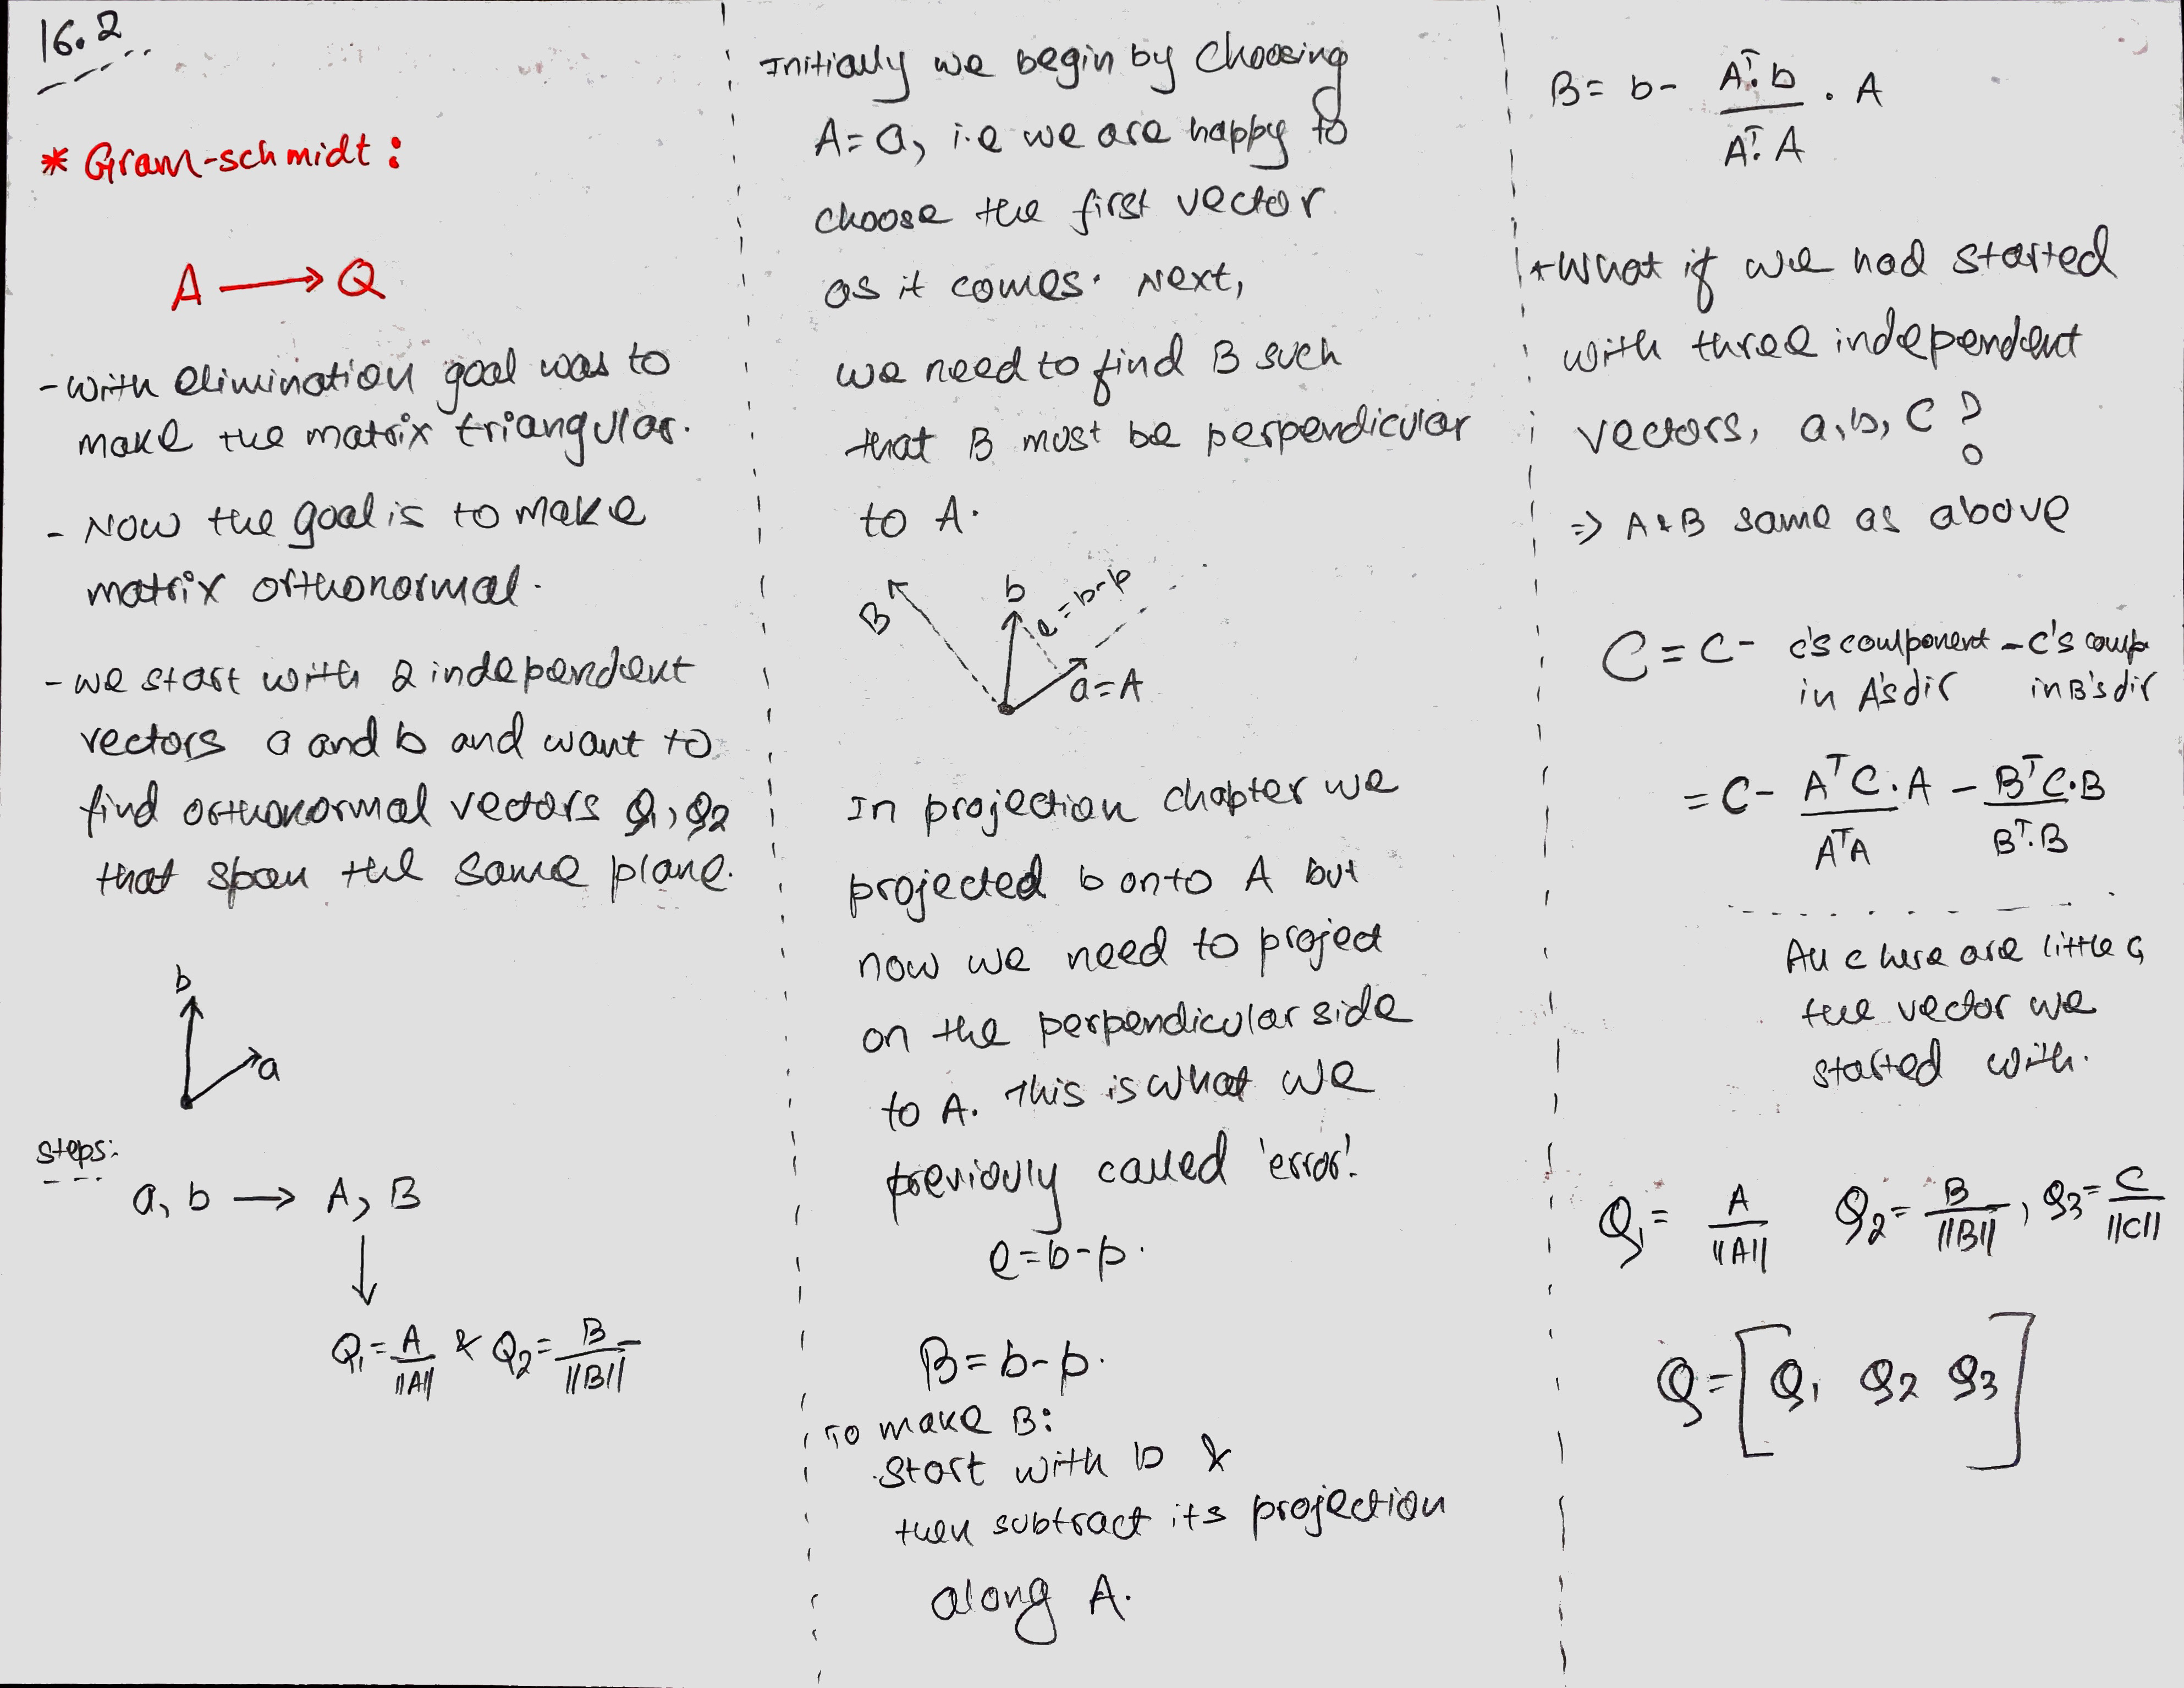 16.2
* Gram-schmidt:
A ⟶ Q
- with elimination goal was to
make the matrix triangular.
- Now the goal is to make
matrix orthonormal.
- we start with 2 independent
vectors a and b and want to
find orthonormal vectors Q₁, Q₂
that span the same plane.
b
a
steps:
a, b ⟶ A, B
↓
Q₁ = A/||A|| & Q₂ = B/||B||
Initially we begin by choosing
A = a, i.e we are happy to
choose the first vector
as it comes. Next,
we need to find B such
that B must be perpendicular
to A.
B
b
e = b-p
a = A
In projection chapter we
projected b onto A but
now we need to project
on the perpendicular side
to A. This is what we
previouly called 'error'.
e = b-p.
B = b-p.
To make B:
Start with b &
then subtract its projection
along A.
B = b - (Aᵀ·b)/(Aᵀ·A) . A
* What if we had started
with three independent
vectors, a, b, c ?
⇒ A & B same as above
C = c - c's component - c's comp
in A's dir in B's dir
= c - (AᵀC)/(AᵀA) . A - (BᵀC)/(Bᵀ.B) . B
All c here are little c,
the vector we
started with.
Q₁ = A/||A|| Q₂ = B/||B||, Q₃ = C/||C||
Q = [Q₁ Q₂ Q₃]